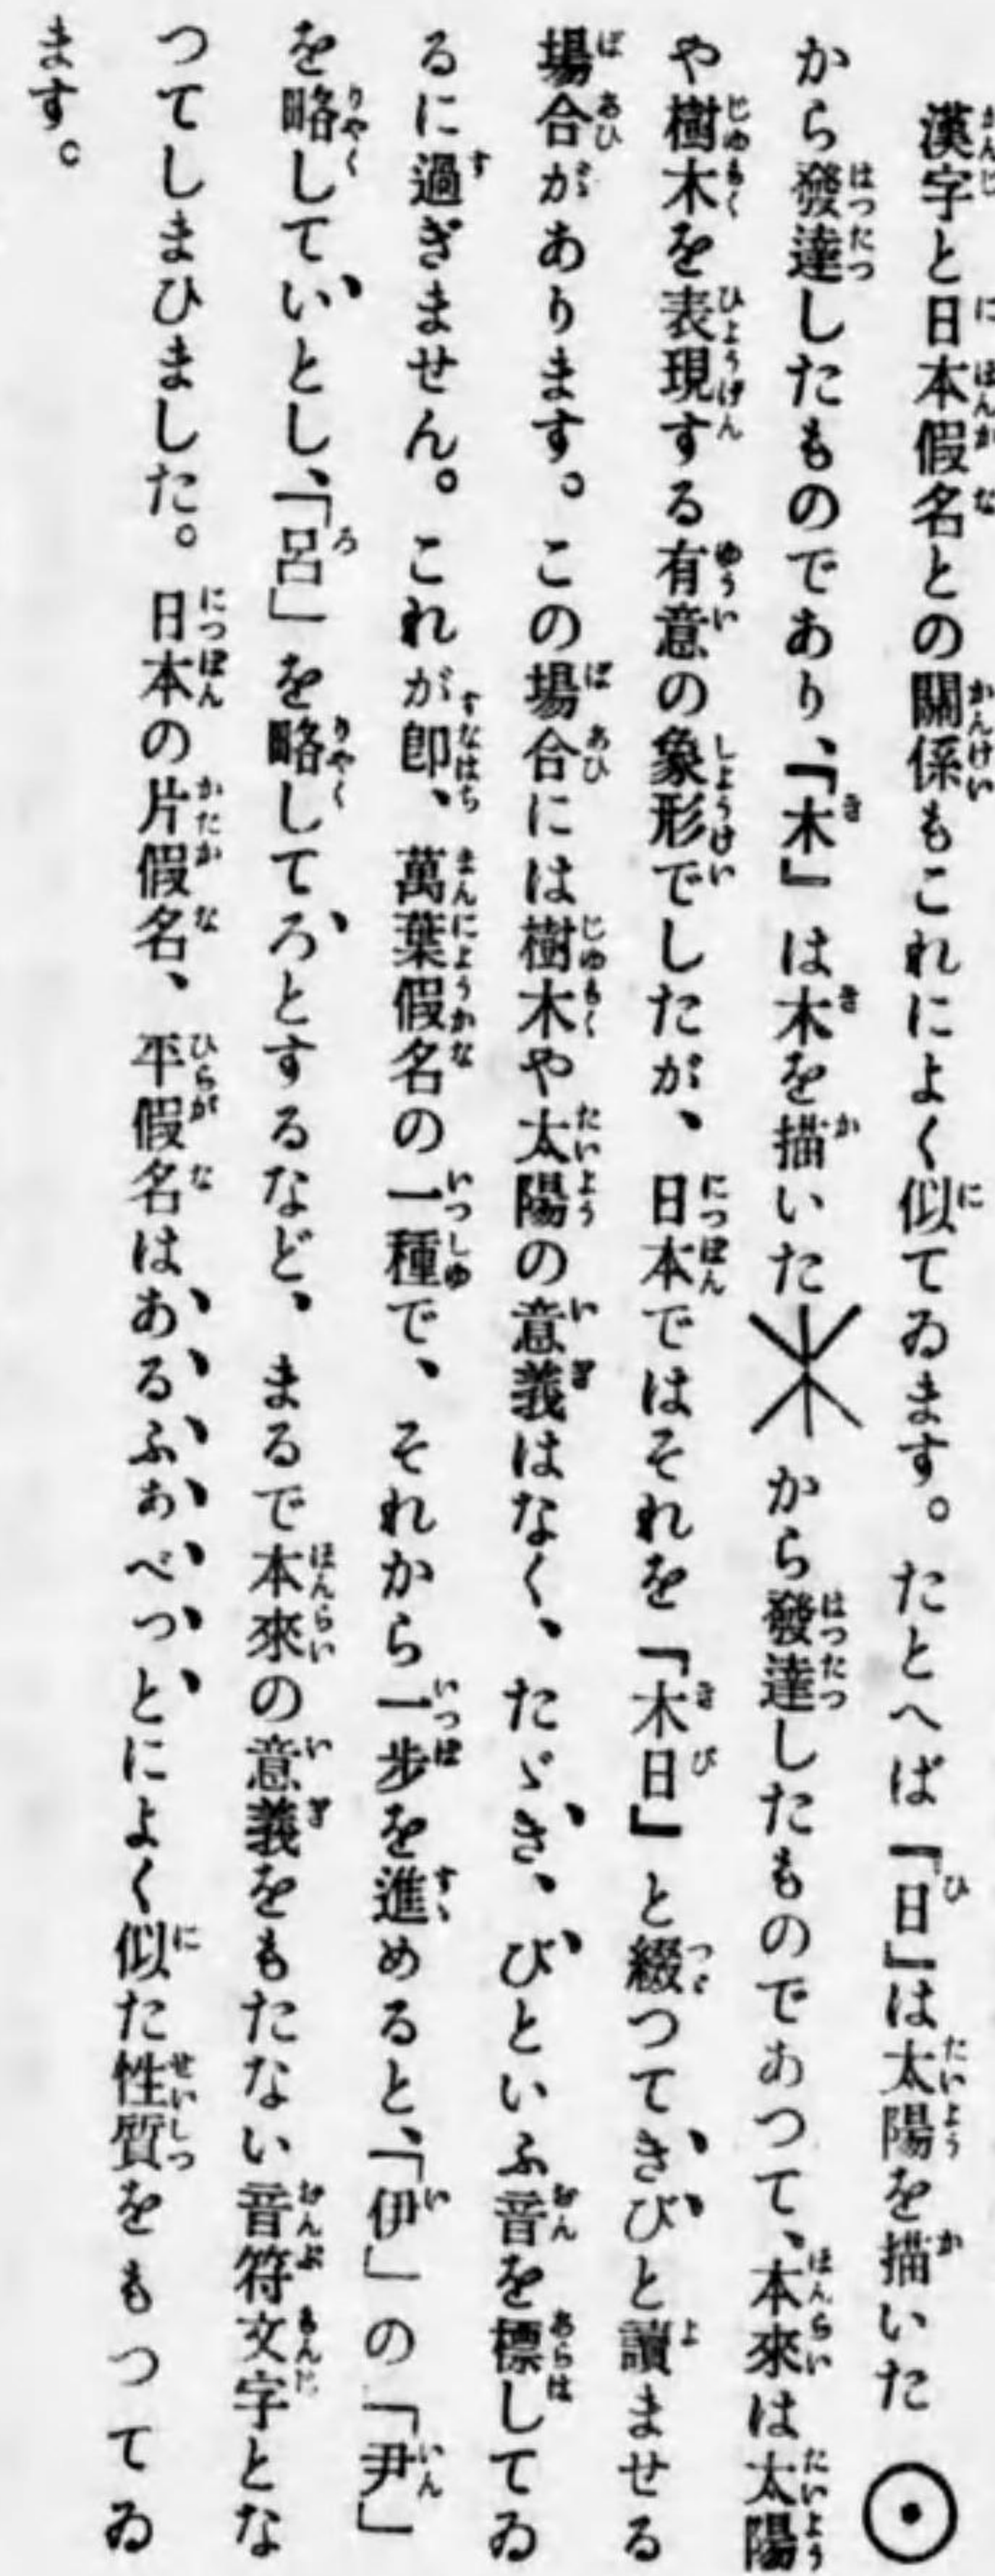 漢字と日本假名との關係もこれによく似てゐます。たとへば『日』は太陽を描いた
から發達したものであり、『木』は木を描いたから發達したものであつて、本來は太陽
や樹木を表現する有意の象形でしたが、日本ではそれを『木日』と綴つてきびと讀ませる
場合があります。この場合には樹木や太陽の意義はなく、たゞき、びといふ音を標してゐ
るに過ぎません。これが卽、萬葉假名の一種で、それから一步を進めると、「伊」の「尹」
を略していとし、「呂」を略してろとするなど、まるで本來の意義をもたない音符文字とな
つてしまひました。日本の片假名、平假名はあるふぁべっとによく似た性質をもつてゐ
ます。